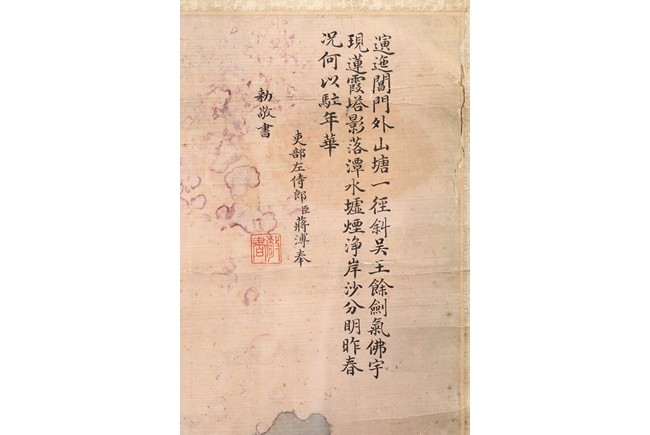 演迤閶門外山塘一徑斜吴王餘劍氣佛宇
現蓮霞塔影落潭水墟煙淨岸沙分明昨春
况何以駐年華
吏部左侍郎臣蔣溥奉
勅敬書
敬書